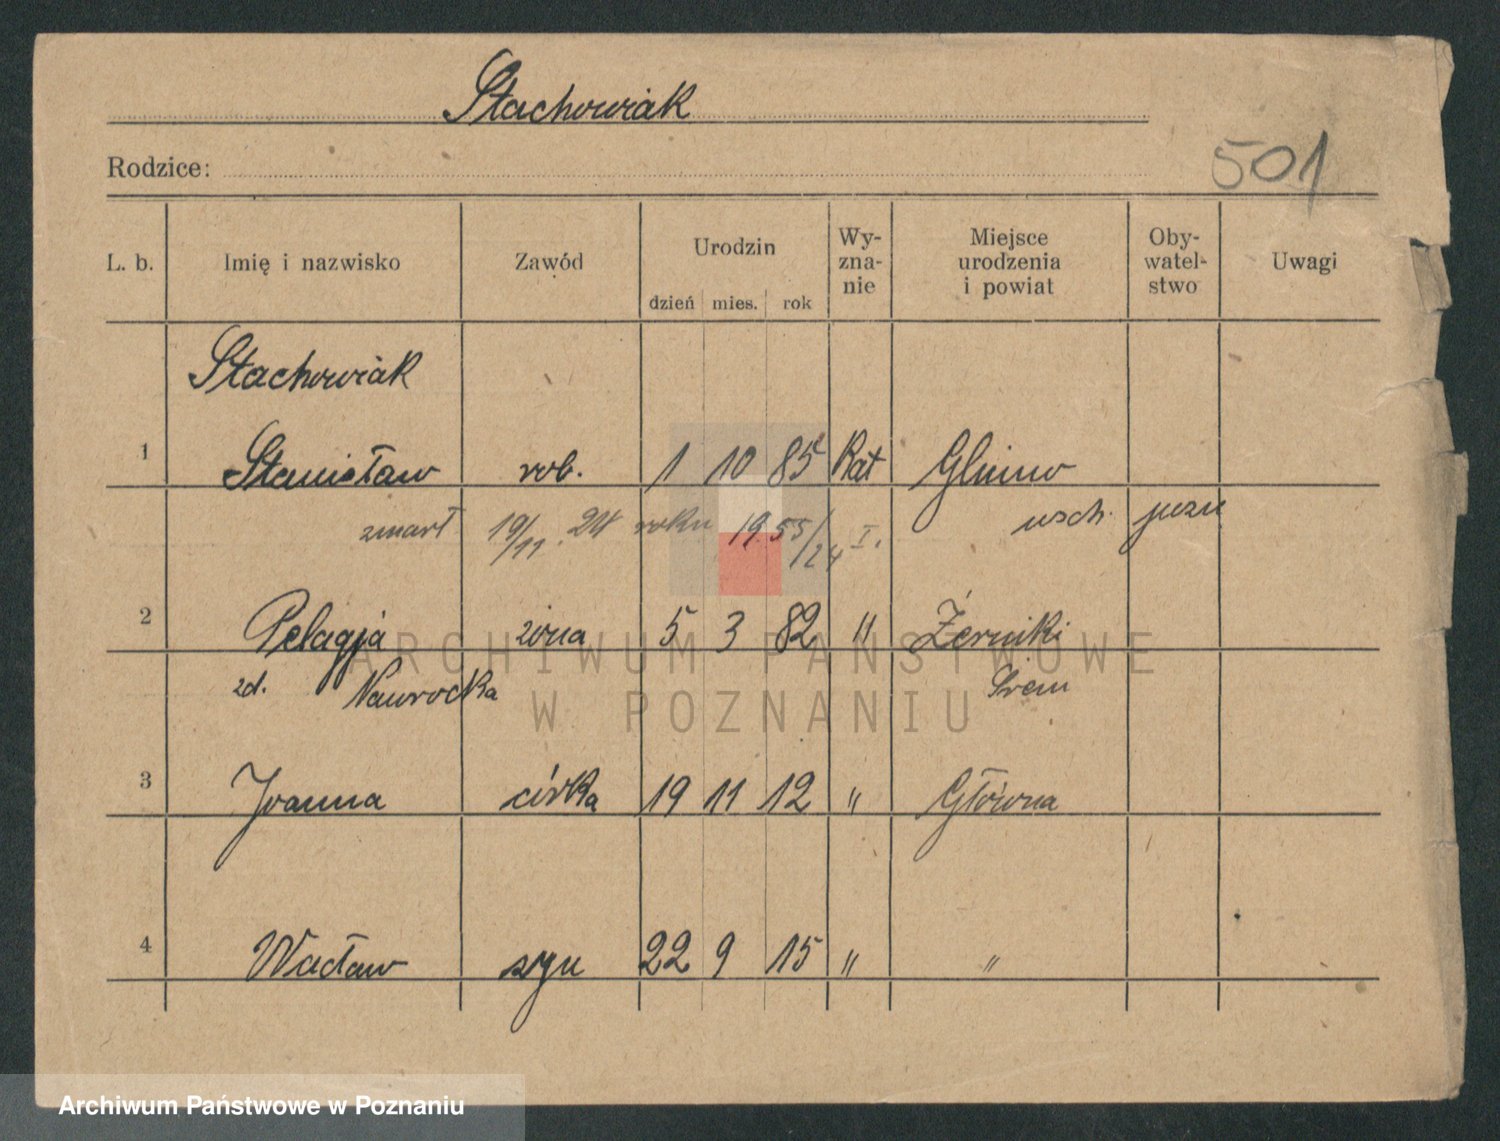 Stachowiak
Rodzice:
501
L. b. Imię i nazwisko Zawód Urodzin dzień mies. rok Wyznanie Miejsce urodzenia i powiat Obywatelstwo Uwagi
Stachowiak
1 Stanisław rob. 1 10 85 Kat Glinno
zmarł 19/11. 24 roku 19.55/24 I. wsch. pozn
2 Pelagja żona 5 3 82 " Żerniki
zd. Nawrocka Śrem
3 Joanna córka 19 11 12 " Główna
4 Wacław syn 22 9 15 " "
ARCHIWUM PAŃSTWOWE
W POZNANIU
Archiwum Państwowe w Poznaniu